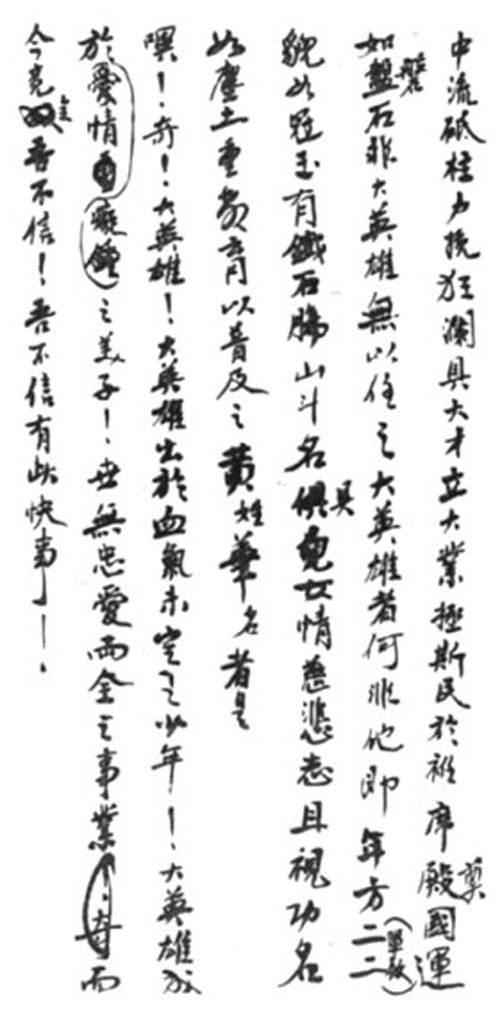 中流砥柱力挽狂瀾具大才立大業拯斯民於衽席殿國運
奠
如盤石非大英雄無以任之大英雄者何非他即年方二二
磐
貌如冠玉有鐵石腸山斗名俱兒女情慈悲志且視功名
具
如塵土重教育以普及之黃姓華名者是
嘿！奇！大英雄！大英雄出於血氣未定之少年！大英雄成
於愛情癡鍾之美子！世無忠愛兩全之事業！奇而
今竟吾不信！吾不信有此快事！